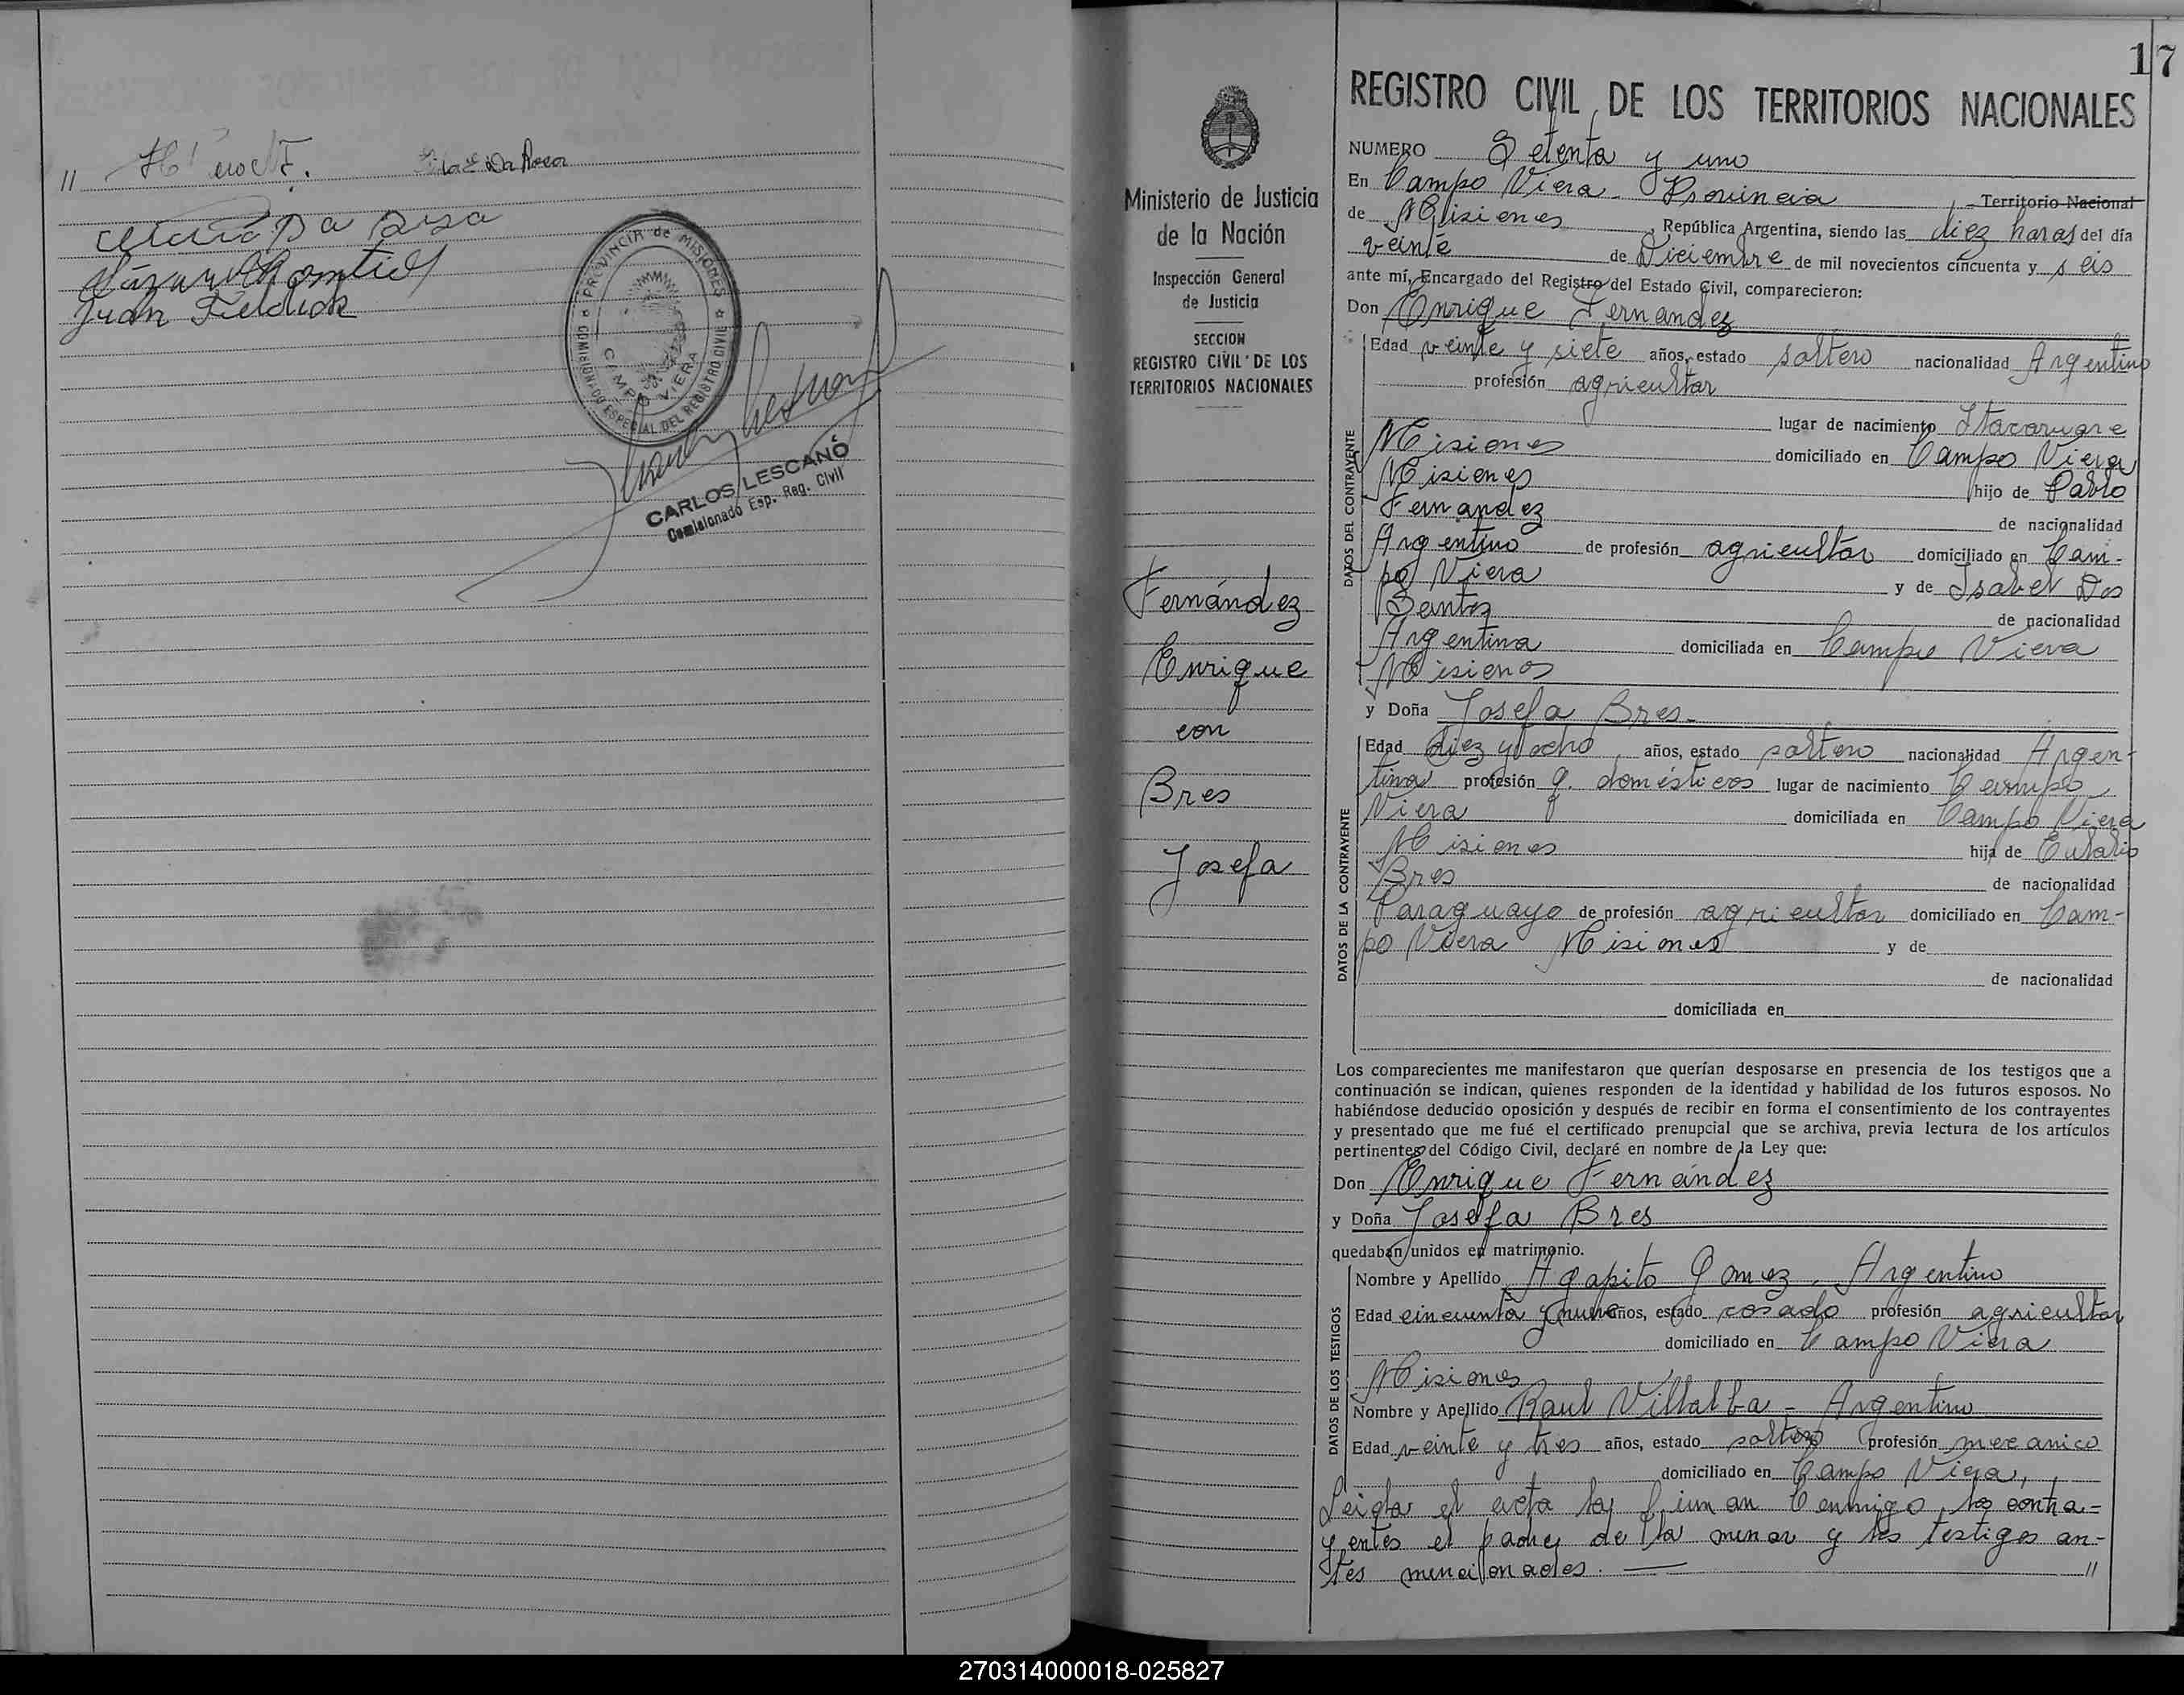 Juan
PROVINCIA de MISIONES
COMISIONADO ESPECIAL DEL REGISTRO CIVIL
CAMPO VIERA
CARLOS LESCANO
Comisionado Esp. Reg. Civil
17
Ministerio de Justicia
de la Nación
Inspección General
de Justicia
SECCION
REGISTRO CIVIL DE LOS
TERRITORIOS NACIONALES
Fernández
Enrique
con
Bres
Josefa
REGISTRO CIVIL DE LOS TERRITORIOS NACIONALES
NUMERO Setenta y uno
En Campo Viera - Provincia - Territorio Nacional
de Misiones, República Argentina, siendo las diez horas del día
veinte de Diciembre de mil novecientos cincuenta y seis
ante mí, Encargado del Registro del Estado Civil, comparecieron:
Don Enrique Fernandez
DATOS DEL CONTRAYENTE
Edad veinte y siete años, estado soltero nacionalidad Argentino
profesión agricultor
lugar de nacimiento Itacaruare
Misiones domiciliado en Campo Viera
Misiones hijo de Pablo
Fernandez de nacionalidad
Argentino de profesión agricultor domiciliado en Cam-
po Viera y de Isabel Dos
Santos de nacionalidad
Argentina domiciliada en Campo Viera
Misiones
y Doña Josefa Bres-
DATOS DE LA CONTRAYENTE
Edad diez y ocho años, estado soltero nacionalidad Argen-
tina profesión q. domésticos lugar de nacimiento Campo
Viera domiciliada en Campo Viera
Misiones hija de Eulalio
Bres de nacionalidad
Paraguayo de profesión agricultor domiciliado en Cam-
po Viera Misiones y de
de nacionalidad
domiciliada en
Los comparecientes me manifestaron que querían desposarse en presencia de los testigos que a
continuación se indican, quienes responden de la identidad y habilidad de los futuros esposos. No
habiéndose deducido oposición y después de recibir en forma el consentimiento de los contrayentes
y presentado que me fué el certificado prenupcial que se archiva, previa lectura de los artículos
pertinentes del Código Civil, declaré en nombre de la Ley que:
Don Enrique Fernández
y Doña Josefa Bres
quedaban unidos en matrimonio.
DATOS DE LOS TESTIGOS
Nombre y Apellido Agapito Gomez, Argentino
Edad cincuenta y nueve años, estado casado profesión agricultor
domiciliado en Campo Viera
Misiones
Nombre y Apellido Raul Villalba - Argentino
Edad veinte y tres años, estado soltero profesión mecanico
domiciliado en Campo Viera,
Leida el acta la firman conmigo los contra=
yentes el padre de la menor y los testigos an-
tes mencionados. — "
270314000018-025827